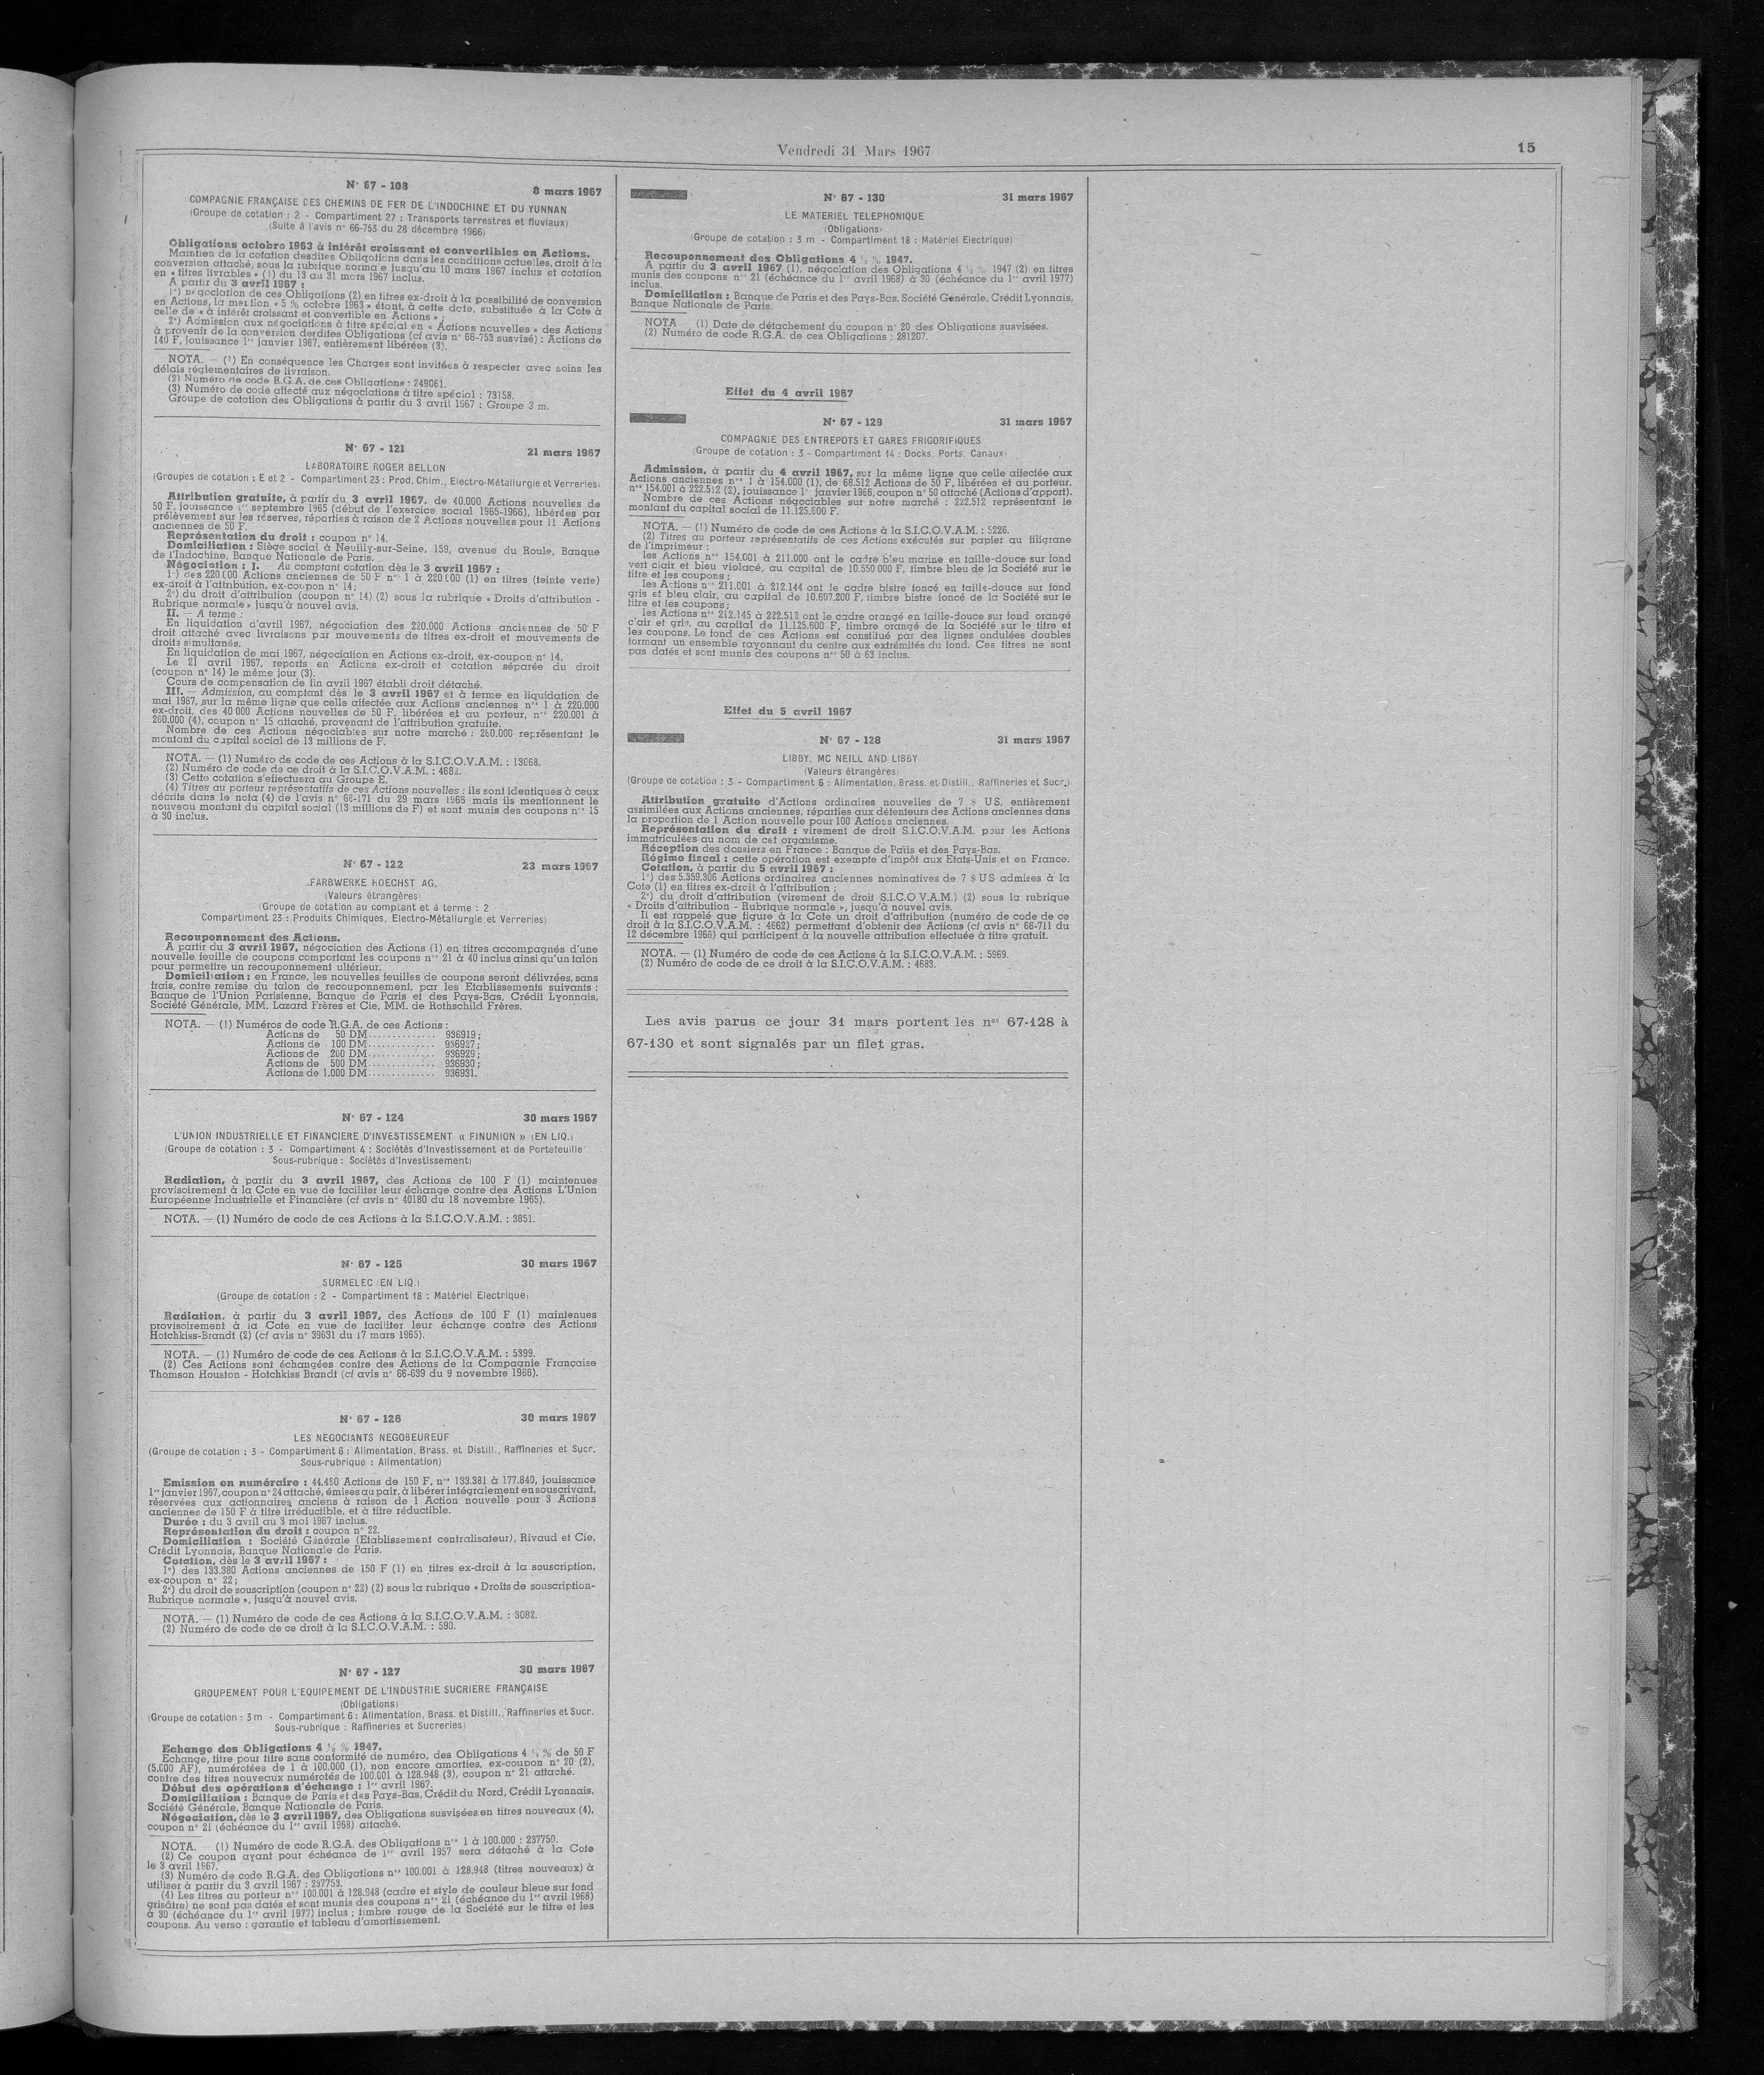 Vendredi 31 Mars 1967
15
N° 67 - 108
8 mars 1967
COMPAGNIE FRANÇAISE DES CHEMINS DE FER DE L'INDOCHINE ET DU YUNNAN
(Groupe de cotation : 2 - Compartiment 27 : Transports terrestres et fluviaux)
(Suite à l'avis n° 66-753 du 28 décembre 1966)
Obligations octobre 1963 à intérêt croissant et convertibles en Actions.
Maintien de la cotation desdites Obligations dans les conditions actuelles, droit à la
conversion attaché, sous la rubrique normale jusqu'au 10 mars 1967 inclus et cotation
en « titres livrables » (1) du 13 au 31 mars 1967 inclus.
A partir du 3 avril 1967 :
1°) négociation de ces Obligations (2) en titres ex-droit à la possibilité de conversion
en Actions, la mention « 5 % octobre 1963 » étant, à cette date, substituée à la Cote à
celle de « à intérêt croissant et convertible en Actions » ;
2°) Admission aux négociations à titre spécial en « Actions nouvelles » des Actions
à provenir de la conversion desdites Obligations (cf avis n° 66-753 susvisé) : Actions de
140 F, jouissance 1er janvier 1967, entièrement libérées (3).
NOTA. — (1) En conséquence les Charges sont invitées à respecter avec soins les
délais réglementaires de livraison.
(2) Numéro de code R.G.A. de ces Obligations : 249061.
(3) Numéro de code affecté aux négociations à titre spécial : 73158.
Groupe de cotation des Obligations à partir du 3 avril 1967 : Groupe 3 m.
N° 67 - 121
21 mars 1967
LABORATOIRE ROGER BELLON
(Groupes de cotation : E et 2 - Compartiment 23 : Prod. Chim., Electro-Métallurgie et Verreries)
Attribution gratuite, à partir du 3 avril 1967, de 40.000 Actions nouvelles de
50 F, jouissance 1er septembre 1965 (début de l'exercice social 1965-1966), libérées par
prélèvement sur les réserves, réparties à raison de 2 Actions nouvelles pour 11 Actions
anciennes de 50 F.
Représentation du droit : coupon n° 14.
Domiciliation : Siège social à Neuilly-sur-Seine, 159, avenue du Roule, Banque
de l'Indochine, Banque Nationale de Paris.
Négociation : I. — Au comptant cotation dès le 3 avril 1967 :
1°) des 220.000 Actions anciennes de 50 F nos 1 à 220.000 (1) en titres (teinte verte)
ex-droit à l'attribution, ex-coupon n° 14;
2°) du droit d'attribution (coupon n° 14) (2) sous la rubrique « Droits d'attribution -
Rubrique normale » jusqu'à nouvel avis.
II. — A terme :
En liquidation d'avril 1967, négociation des 220.000 Actions anciennes de 50 F
droit attaché avec livraisons par mouvements de titres ex-droit et mouvements de
droits simultanés.
En liquidation de mai 1967, négociation en Actions ex-droit, ex-coupon n° 14.
Le 21 avril 1967, reports en Actions ex-droit et cotation séparée du droit
(coupon n° 14) le même jour (3).
Cours de compensation de fin avril 1967 établi droit détaché.
III. — Admission, au comptant dès le 3 avril 1967 et à terme en liquidation de
mai 1967, sur la même ligne que celle affectée aux Actions anciennes nos 1 à 220.000
ex-droit, des 40 000 Actions nouvelles de 50 F, libérées et au porteur, nos 220.001 à
260.000 (4), coupon n° 15 attaché, provenant de l'attribution gratuite.
Nombre de ces Actions négociables sur notre marché : 260.000 représentant le
montant du capital social de 13 millions de F.
NOTA. — (1) Numéro de code de ces Actions à la S.I.C.O.V.A.M. : 13068.
(2) Numéro de code de ce droit à la S.I.C.O.V.A.M. : 4682.
(3) Cette cotation s'effectuera au Groupe E.
(4) Titres au porteur représentatifs de ces Actions nouvelles : ils sont identiques à ceux
décrits dans le nota (4) de l'avis n° 66-171 du 29 mars 1966 mais ils mentionnent le
nouveau montant du capital social (13 millions de F) et sont munis des coupons nos 15
à 30 inclus.
N° 67 - 122
23 mars 1967
FARBWERKE HOECHST AG.
(Valeurs étrangères)
(Groupe de cotation au comptant et à terme : 2
Compartiment 23 : Produits Chimiques, Electro-Métallurgie et Verreries)
Recouponnement des Actions.
A partir du 3 avril 1967, négociation des Actions (1) en titres accompagnés d'une
nouvelle feuille de coupons comportant les coupons nos 21 à 40 inclus ainsi qu'un talon
pour permettre un recouponnement ultérieur.
Domiciliation : en France, les nouvelles feuilles de coupons seront délivrées, sans
frais, contre remise du talon de recouponnement, par les Etablissements suivants :
Banque de l'Union Parisienne, Banque de Paris et des Pays-Bas, Crédit Lyonnais,
Société Générale, MM. Lazard Frères et Cie, MM. de Rothschild Frères.
NOTA. — (1) Numéros de code R.G.A. de ces Actions :
Actions de 50 DM............. 936919;
Actions de 100 DM............. 936927;
Actions de 200 DM............. 936929;
Actions de 500 DM............. 936930;
Actions de 1.000 DM............. 936931.
N° 67 - 124
30 mars 1967
L'UNION INDUSTRIELLE ET FINANCIERE D'INVESTISSEMENT « FINUNION » (EN LIQ.)
(Groupe de cotation : 3 - Compartiment 4 : Sociétés d'Investissement et de Portefeuille
Sous-rubrique : Sociétés d'Investissement)
Radiation, à partir du 3 avril 1967, des Actions de 100 F (1) maintenues
provisoirement à la Cote en vue de faciliter leur échange contre des Actions L'Union
Européenne Industrielle et Financière (cf avis n° 40180 du 18 novembre 1965).
NOTA. — (1) Numéro de code de ces Actions à la S.I.C.O.V.A.M. : 3851.
N° 67 - 125
30 mars 1967
SURMELEC (EN LIQ.)
(Groupe de cotation : 2 - Compartiment 18 : Matériel Electrique)
Radiation, à partir du 3 avril 1967, des Actions de 100 F (1) maintenues
provisoirement à la Cote en vue de faciliter leur échange contre des Actions
Hotchkiss-Brandt (2) (cf avis n° 39631 du 17 mars 1965).
NOTA. — (1) Numéro de code de ces Actions à la S.I.C.O.V.A.M. : 5399.
(2) Ces Actions sont échangées contre des Actions de la Compagnie Française
Thomson Houston - Hotchkiss Brandt (cf avis n° 66-639 du 9 novembre 1966).
N° 67 - 126
30 mars 1967
LES NEGOCIANTS NEGOBEUREUF
(Groupe de cotation : 3 - Compartiment 6 : Alimentation, Brass. et Distill., Raffineries et Sucr.
Sous-rubrique : Alimentation)
Emission en numéraire : 44.460 Actions de 150 F, nos 133.381 à 177.840, jouissance
1er janvier 1967, coupon n° 24 attaché, émises au pair, à libérer intégralement en souscrivant,
réservées aux actionnaires anciens à raison de 1 Action nouvelle pour 3 Actions
anciennes de 150 F à titre irréductible, et à titre réductible.
Durée : du 3 avril au 3 mai 1967 inclus.
Représentation du droit : coupon n° 22.
Domiciliation : Société Générale (Etablissement centralisateur), Rivaud et Cie,
Crédit Lyonnais, Banque Nationale de Paris.
Cotation, dès le 3 avril 1967 :
1°) des 133.380 Actions anciennes de 150 F (1) en titres ex-droit à la souscription,
ex-coupon n° 22;
2°) du droit de souscription (coupon n° 22) (2) sous la rubrique « Droits de souscription-
Rubrique normale », jusqu'à nouvel avis.
NOTA. — (1) Numéro de code de ces Actions à la S.I.C.O.V.A.M. : 3082.
(2) Numéro de code de ce droit à la S.I.C.O.V.A.M. : 590.
N° 67 - 127
30 mars 1967
GROUPEMENT POUR L'EQUIPEMENT DE L'INDUSTRIE SUCRIERE FRANÇAISE
(Obligations)
(Groupe de cotation : 3 m - Compartiment 6 : Alimentation, Brass. et Distill., Raffineries et Sucr.
Sous-rubrique : Raffineries et Sucreries)
Echange des Obligations 4 ½ % 1947.
Echange, titre pour titre sans conformité de numéro, des Obligations 4 ½ % de 50 F
(5.000 AF), numérotées de 1 à 100.000 (1), non encore amorties, ex-coupon n° 20 (2),
contre des titres nouveaux numérotés de 100.001 à 128.948 (3), coupon n° 21 attaché.
Début des opérations d'échange : 1er avril 1967.
Domiciliation : Banque de Paris et des Pays-Bas, Crédit du Nord, Crédit Lyonnais,
Société Générale, Banque Nationale de Paris.
Négociation, dès le 3 avril 1967, des Obligations susvisées en titres nouveaux (4),
coupon n° 21 (échéance du 1er avril 1968) attaché.
NOTA. — (1) Numéro de code R.G.A. des Obligations nos 1 à 100.000 : 237750.
(2) Ce coupon ayant pour échéance de 1er avril 1957 sera détaché à la Cote
le 3 avril 1967.
(3) Numéro de code R.G.A. des Obligations nos 100.001 à 128.948 (titres nouveaux) à
utiliser à partir du 3 avril 1967 : 237753.
(4) Les titres au porteur nos 100.001 à 128.948 (cadre et style de couleur bleue sur fond
grisâtre) ne sont pas datés et sont munis des coupons nos 21 (échéance du 1er avril 1968)
à 30 (échéance du 1er avril 1977) inclus ; timbre rouge de la Société sur le titre et les
coupons. Au verso : garantie et tableau d'amortissement.
N° 67 - 130
31 mars 1967
LE MATERIEL TELEPHONIQUE
(Obligations)
(Groupe de cotation : 3 m - Compartiment 18 : Matériel Electrique)
Recouponnement des Obligations 4 ½ % 1947.
A partir du 3 avril 1967 (1), négociation des Obligations 4 ½ % 1947 (2) en titres
munis des coupons nos 21 (échéance du 1er avril 1968) à 30 (échéance du 1er avril 1977)
inclus.
Domiciliation : Banque de Paris et des Pays-Bas, Société Générale, Crédit Lyonnais,
Banque Nationale de Paris.
NOTA — (1) Date de détachement du coupon n° 20 des Obligations susvisées.
(2) Numéro de code R.G.A. de ces Obligations : 281207.
Effet du 4 avril 1967
N° 67 - 129
31 mars 1967
COMPAGNIE DES ENTREPOTS ET GARES FRIGORIFIQUES
(Groupe de cotation : 3 - Compartiment 14 : Docks, Ports, Canaux)
Admission, à partir du 4 avril 1967, sur la même ligne que celle affectée aux
Actions anciennes nos 1 à 154.000 (1), de 68.512 Actions de 50 F, libérées et au porteur,
nos 154.001 à 222.512 (2), jouissance 1er janvier 1966, coupon n° 50 attaché (Actions d'apport).
Nombre de ces Actions négociables sur notre marché : 222.512 représentant le
montant du capital social de 11.125.600 F.
NOTA. — (1) Numéro de code de ces Actions à la S.I.C.O.V.A.M. : 5226.
(2) Titres au porteur représentatifs de ces Actions exécutés sur papier au filigrane
de l'imprimeur :
les Actions nos 154.001 à 211.000 ont le cadre bleu marine en taille-douce sur fond
vert clair et bleu violacé, au capital de 10.550 000 F, timbre bleu de la Société sur le
titre et les coupons ;
les Actions nos 211.001 à 212.144 ont le cadre bistre foncé en taille-douce sur fond
gris et bleu clair, au capital de 10.607.200 F, timbre bistre foncé de la Société sur le
titre et les coupons;
les Actions nos 212.145 à 222.512 ont le cadre orangé en taille-douce sur fond orangé
clair et gris, au capital de 11.125.600 F, timbre orangé de la Société sur le titre et
les coupons. Le fond de ces Actions est constitué par des lignes ondulées doubles
formant un ensemble rayonnant du centre aux extrémités du fond. Ces titres ne sont
pas datés et sont munis des coupons nos 50 à 63 inclus.
Effet du 5 avril 1967
N° 67 - 128
31 mars 1967
LIBBY, MC NEILL AND LIBBY
(Valeurs étrangères)
(Groupe de cotation : 3 - Compartiment 6 : Alimentation, Brass. et Distill., Raffineries et Sucr.)
Attribution gratuite d'Actions ordinaires nouvelles de 7 $ US, entièrement
assimilées aux Actions anciennes, réparties aux détenteurs des Actions anciennes dans
la proportion de 1 Action nouvelle pour 100 Actions anciennes.
Représentation du droit : virement de droit S.I.C.O.V.A.M. pour les Actions
immatriculées au nom de cet organisme.
Réception des dossiers en France : Banque de Paris et des Pays-Bas.
Régime fiscal : cette opération est exempte d'impôt aux Etats-Unis et en France.
Cotation, à partir du 5 avril 1967 :
1°) des 5.359.306 Actions ordinaires anciennes nominatives de 7 $ US admises à la
Cote (1) en titres ex-droit à l'attribution ;
2°) du droit d'attribution (virement de droit S.I.C.O V.A.M.) (2) sous la rubrique
« Droits d'attribution - Rubrique normale », jusqu'à nouvel avis.
Il est rappelé que figure à la Cote un droit d'attribution (numéro de code de ce
droit à la S.I.C.O.V.A.M. : 4662) permettant d'obtenir des Actions (cf avis n° 66-711 du
12 décembre 1966) qui participent à la nouvelle attribution effectuée à titre gratuit.
NOTA. — (1) Numéro de code de ces Actions à la S.I.C.O.V.A.M. : 5969.
(2) Numéro de code de ce droit à la S.I.C.O.V.A.M. : 4683.
Les avis parus ce jour 31 mars portent les nos 67-128 à
67-130 et sont signalés par un filet gras.